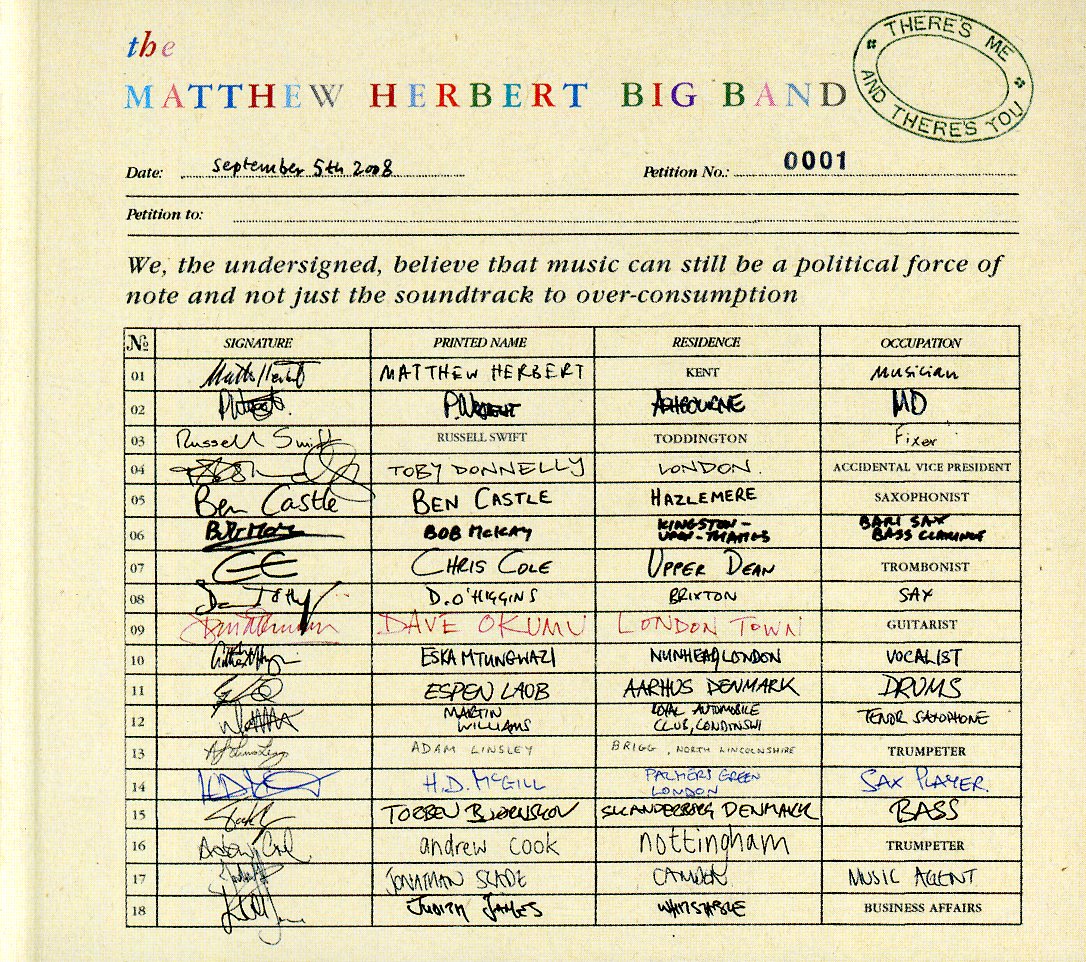 the
THERE'S ME
AND THERE'S YOU
MATTHEW HERBERT BIG BAND
Date: September 5th 2008 Petition No.: 0001
Petition to:
We, the undersigned, believe that music can still be a political force of
note and not just the soundtrack to over-consumption
No SIGNATURE PRINTED NAME RESIDENCE OCCUPATION
01 MATTHEW HERBERT KENT Musician
02 ASHBOURNE MD
03 Russell Swift RUSSELL SWIFT TODDINGTON Fixer
04 TOBY DONNELLY LONDON. ACCIDENTAL VICE PRESIDENT
05 Ben Castle BEN CASTLE HAZLEMERE SAXOPHONIST
06 BOB McKAY KINGSTON-
UPON-THAMES BARI SAX
BASS CLARINET
07 CHRIS COLE UPPER DEAN TROMBONIST
08 D. O'HIGGINS BRIXTON SAX
09 DAVE OKUMU LONDON TOWN GUITARIST
10 ESKA MTUNGWAZI NUNHEAD, LONDON VOCALIST
11 ESPEN LAUB AARHUS DENMARK DRUMS
12 MARTIN
WILLIAMS ROYAL AUTOMOBILE
CLUB, LONDON SW1 TENOR SAXOPHONE
13 ADAM LINSLEY BRIGG, NORTH LINCOLNSHIRE TRUMPETER
14 H.D. McGILL PALMERS GREEN
LONDON SAX PLAYER.
15 TORBEN BJØRNSKOV SKANDERBORG DENMARK BASS
16 andrew cook nottingham TRUMPETER
17 JONATHAN SLADE CAMDEN MUSIC AGENT
18 JUDITH JAMES WHITSTABLE BUSINESS AFFAIRS